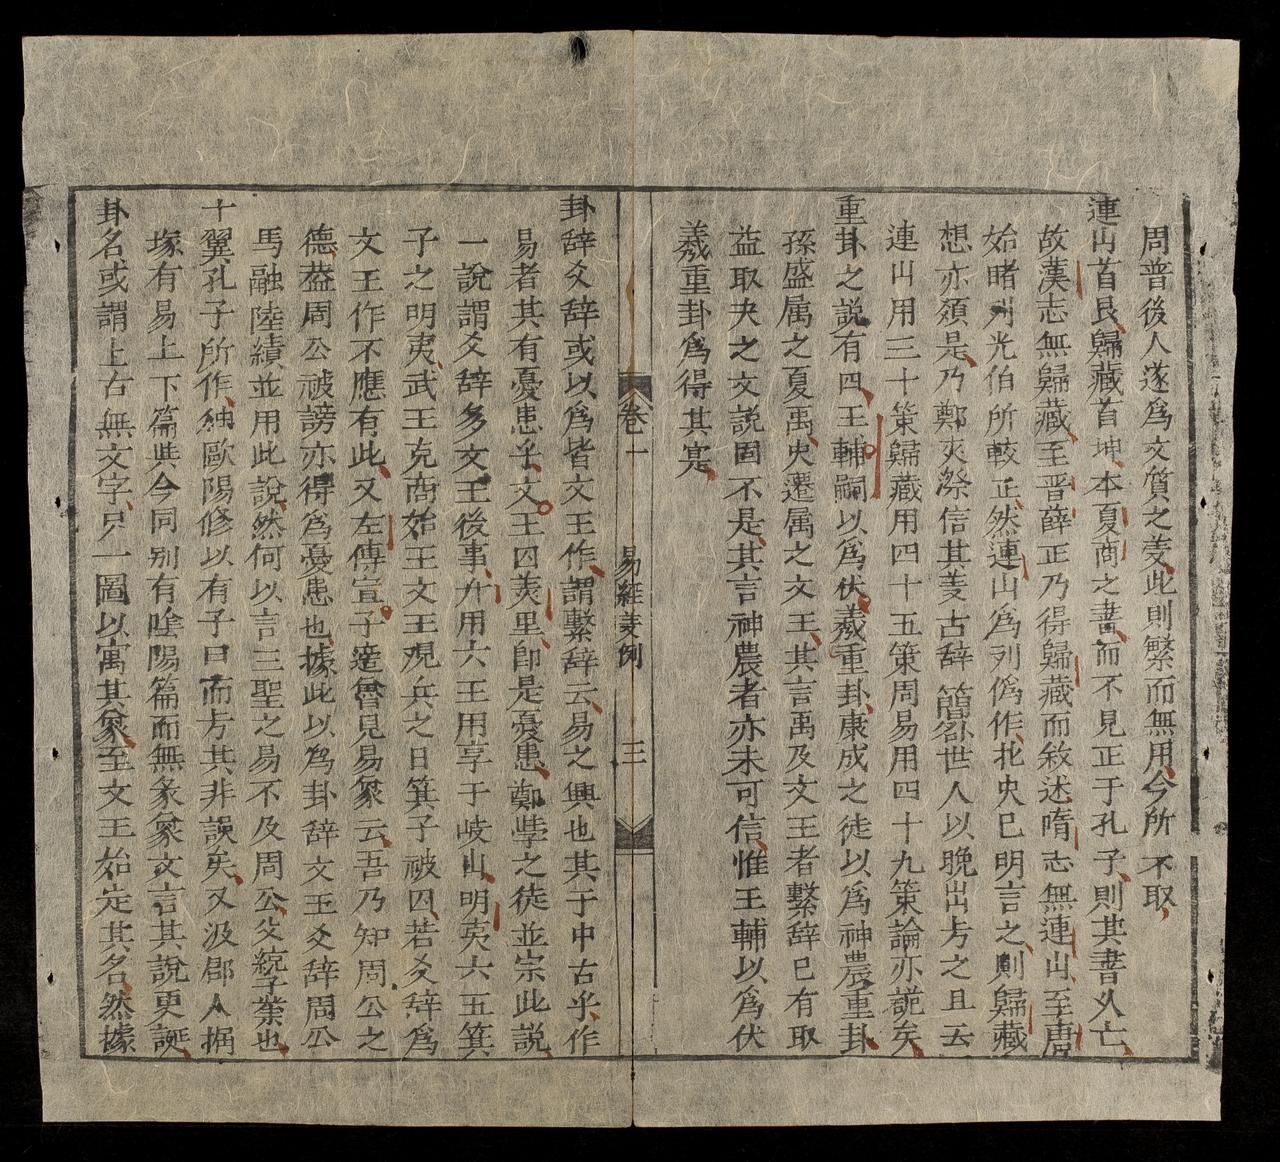 周普後人遂爲文質之義此則繁而無用今所不取
連山首艮歸藏首坤本夏商之書而不見正于孔子則其書久亡
故漢志無歸藏至晋薛正乃得歸藏而敘述隋志無連山至唐
始睹列光伯所較正然連山爲列僞作北史已明言之則歸藏
想亦類是乃鄭夾漈信其義古辭簡必世人以晚出考之且云
連山用三十策歸藏用四十五策周易用四十九策論亦詭矣
重卦之説有四王輔嗣以爲伏羲重卦康成之徒以爲神農重卦
孫盛属之夏禹史遷属之文王其言禹及文王者繫辞已有取
益取夬之文説固不是其言神農者亦未可信惟王輔以爲伏
羲重卦爲得其寔
卷一 易經義例 三
卦辞爻辞或以爲皆文王作謂繫辞云易之興也其于中古乎作
易者其有憂患乎文王囚羑里即是憂患鄭學之徒並宗此説
一說謂爻辞多文王後事升用六王用享于岐山明夷六五箕
子之明夷武王克商始王文王观兵之日箕子被囚若爻辞爲
文王作不應有此又左傳宣子適魯見易象云吾乃知周公之
德葢周公被謗亦得爲憂患也據此以爲卦辞文王爻辞周公
馬融陸績並用此說然何以言三聖之易不及周公父統子業也
十翼孔子所作独歐陽修以有子曰而方其非誤矣又汲郡人掘
塚有易上下篇與今同别有陰陽篇而無彖象文言其說更誕
卦名或謂上古無文字只一圖以寓其象至文王始定其名然據